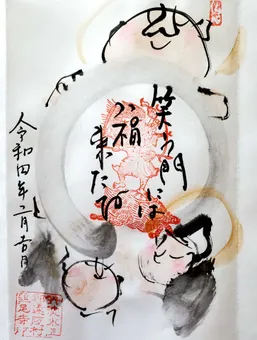 笑う門には
福
来たる
令和四年二月吉日